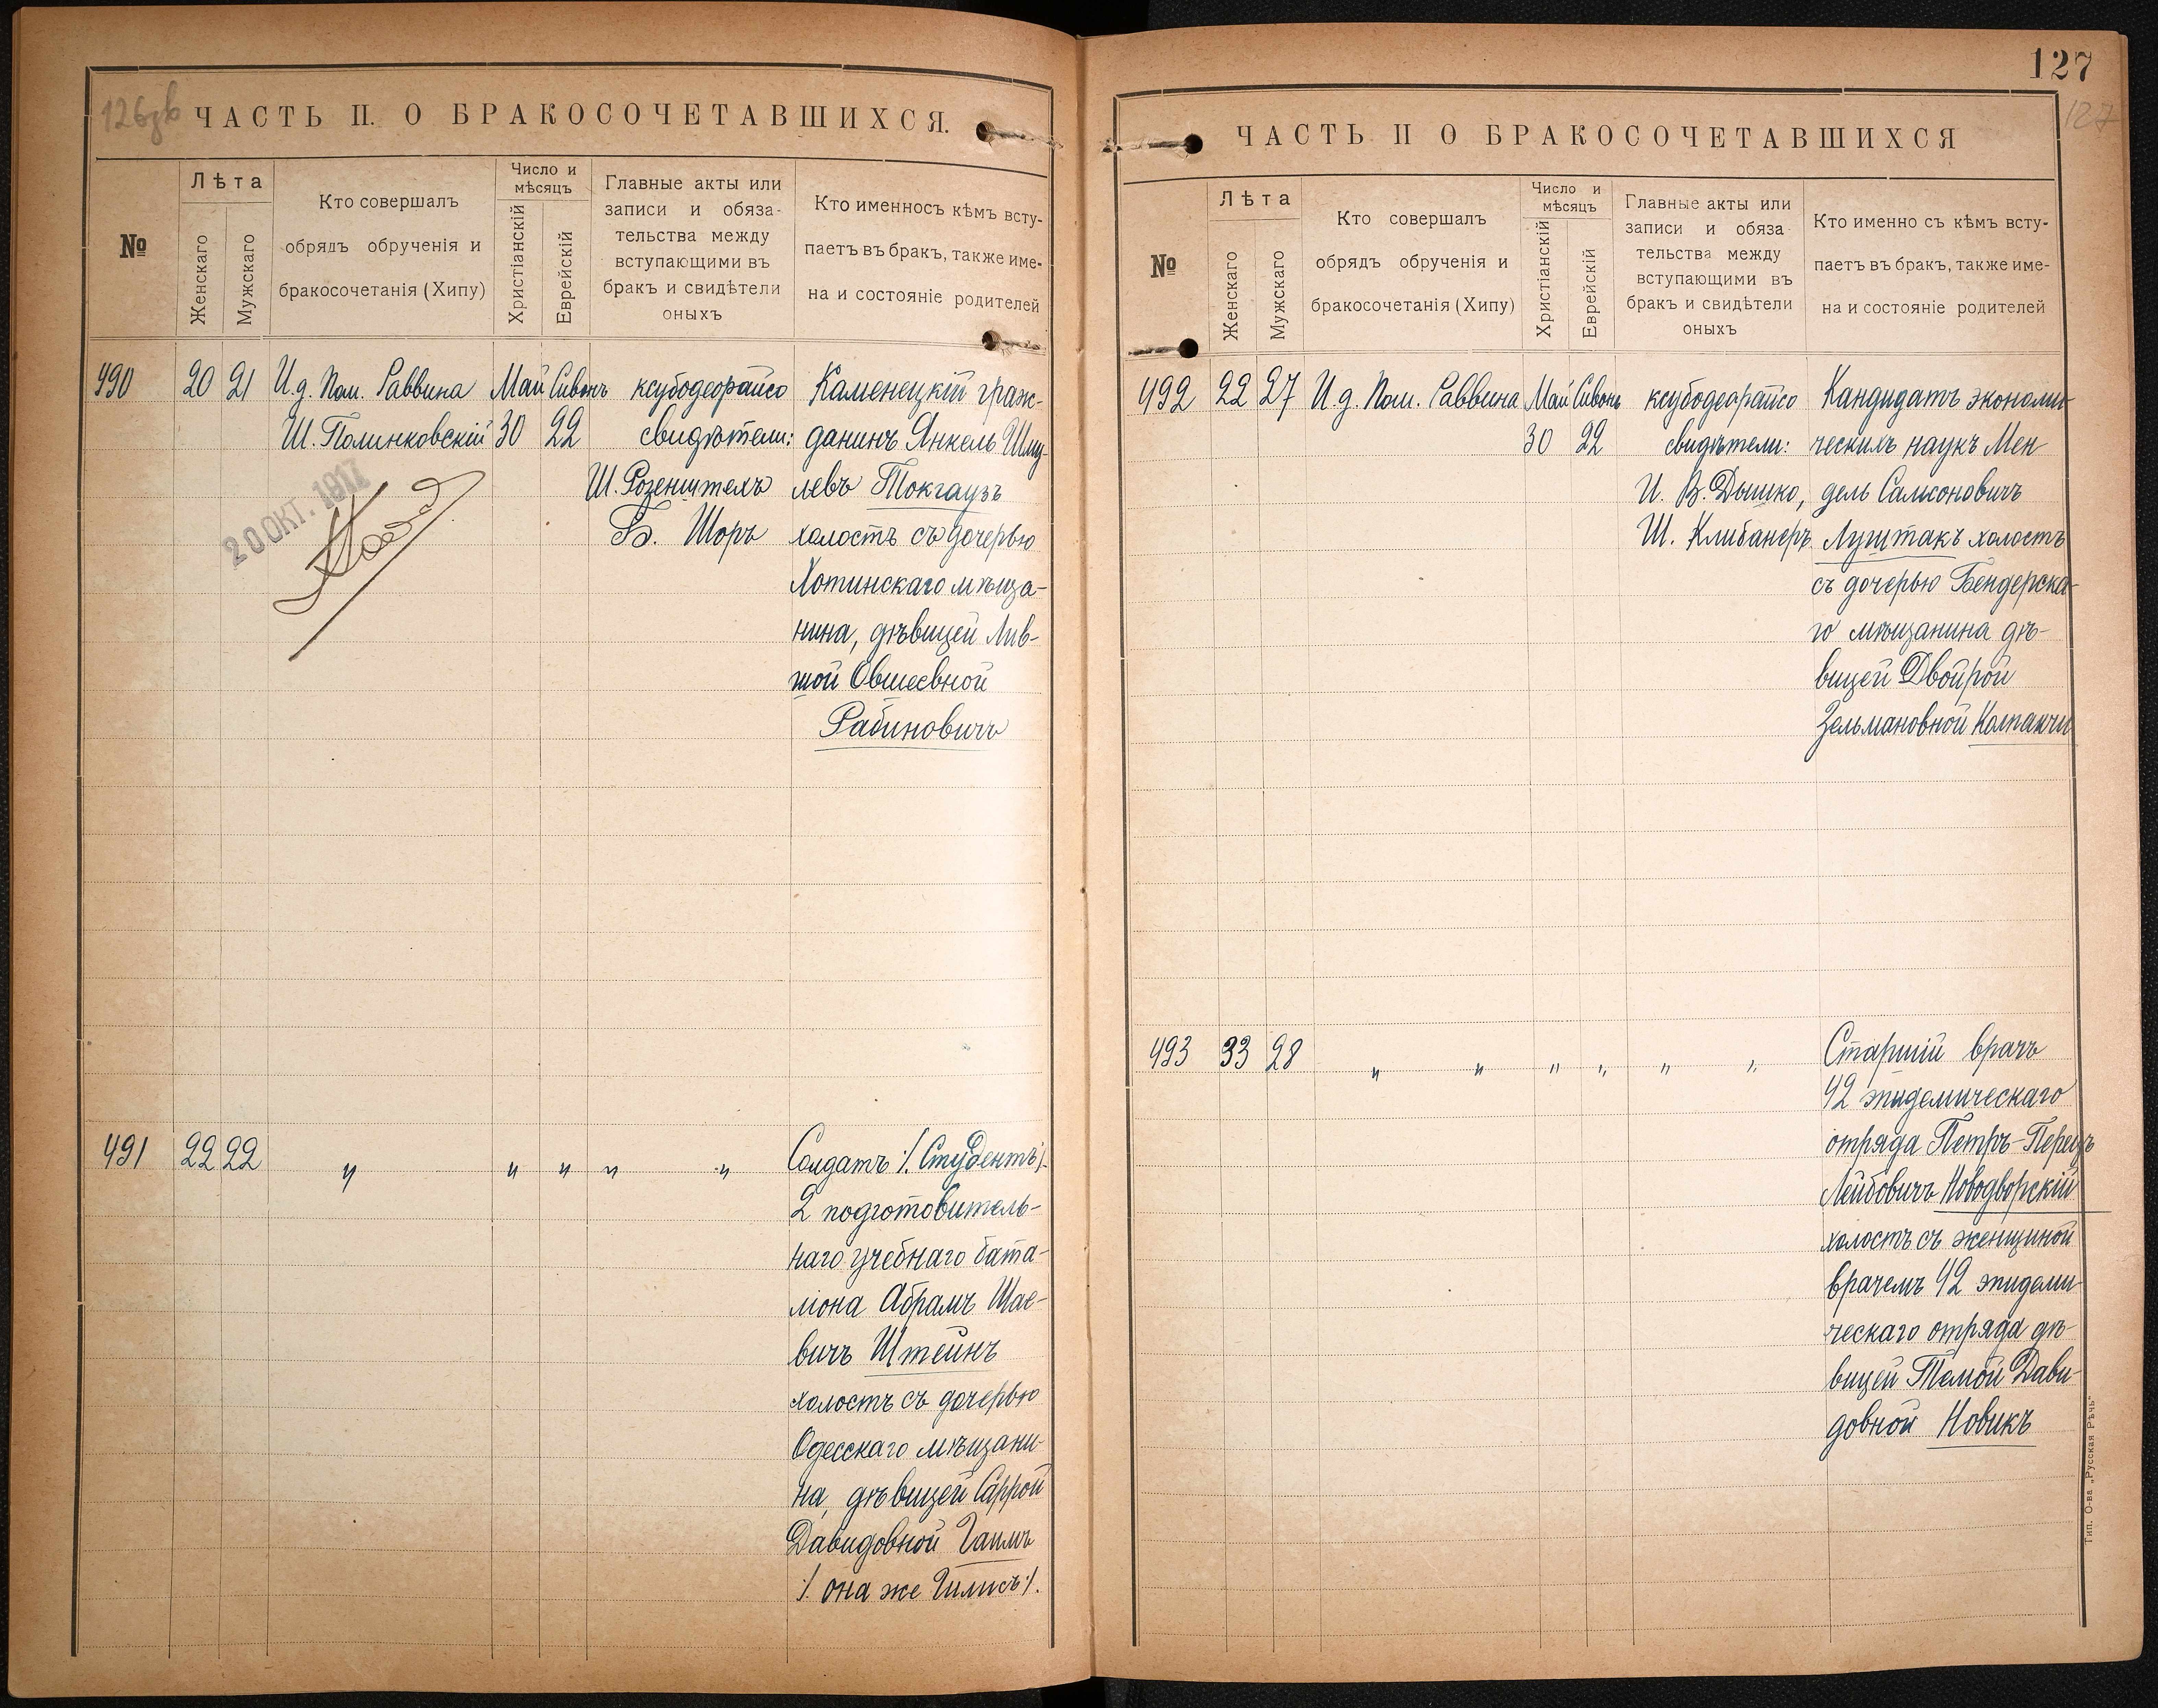 126зв
ЧАСТЬ II. О БРАКОСОЧЕТАВШИХСЯ.
№
Лѣта
Женскаго
Мужскаго
Кто совершалъ
обрядъ обрученія и
бракосочетанія (Хипу)
Число и
мѣсяцъ
Христіанскій
Еврейскій
Главные акты или
записи и обяза-
тельства между
вступающими въ
бракъ и свидѣтели
оныхъ
Кто именносъ кѣмъ всту-
паетъ въ бракъ, также име-
на и состояніе родителей
490 20 21 И.д. Пом. Раввина Май Сивонъ ксубодеорайсо Каменецкій граж-
Ш. Полинковскій 30 22 свидѣтели: данинъ Янкель Шму-
Ш. Розенштехъ левъ Токгаузъ
Б. Шоръ холостъ съ дочерью
20 ОКТ. 1917
Хотинскаго мѣща-
нина, дѣвицей Лив-
шой Овшеевной
Рабиновичъ
491 22 22 " " " " " Солдатъ ⁒ Студентъ ⁒
2 подготовитель-
наго учебнаго бата-
ліона Абрамъ Шае-
вичъ Штейнъ
холостъ съ дочерью
Одесскаго мѣщани-
на, дѣвицей Саррой
Давидовной Гаимъ
⁒ она же Гилисъ ⁒.
127
127
ЧАСТЬ II О БРАКОСОЧЕТАВШИХСЯ
№
Лѣта
Женскаго
Мужскаго
Кто совершалъ
обрядъ обрученія и
бракосочетанія (Хипу)
Число и
мѣсяцъ
Христіанскій
Еврейскій
Главные акты или
записи и обяза
тельства между
вступающими въ
бракъ и свидѣтели
оныхъ
Кто именно съ кѣмъ всту-
паетъ въ бракъ, также име-
на и состояніе родителей
492 22 27 И.д. Пом. Раввина Май Сивонъ ксубодеорайсо Кандидатъ экономи-
30 22 свидѣтели: ческихъ наукъ Мен
И. В. Дышко, дель Самсоновичъ
Ш. Клибанеръ. Луштакъ холостъ
съ дочерью Бендерска-
го мѣщанина дѣ-
вицей Двойрой
Зельмановной Колпакчи
493 33 28 " " " " " " Старшій врачъ
42 эпидемическаго
отряда Петръ-Перецъ
Лейбовичъ Новодворскій
холостъ съ женщиной
врачемъ 42 эпидеми-
ческаго отряда дѣ-
вицей Темой Дави-
довной Новикъ
Тип. О-ва „Русская Рѣчь"